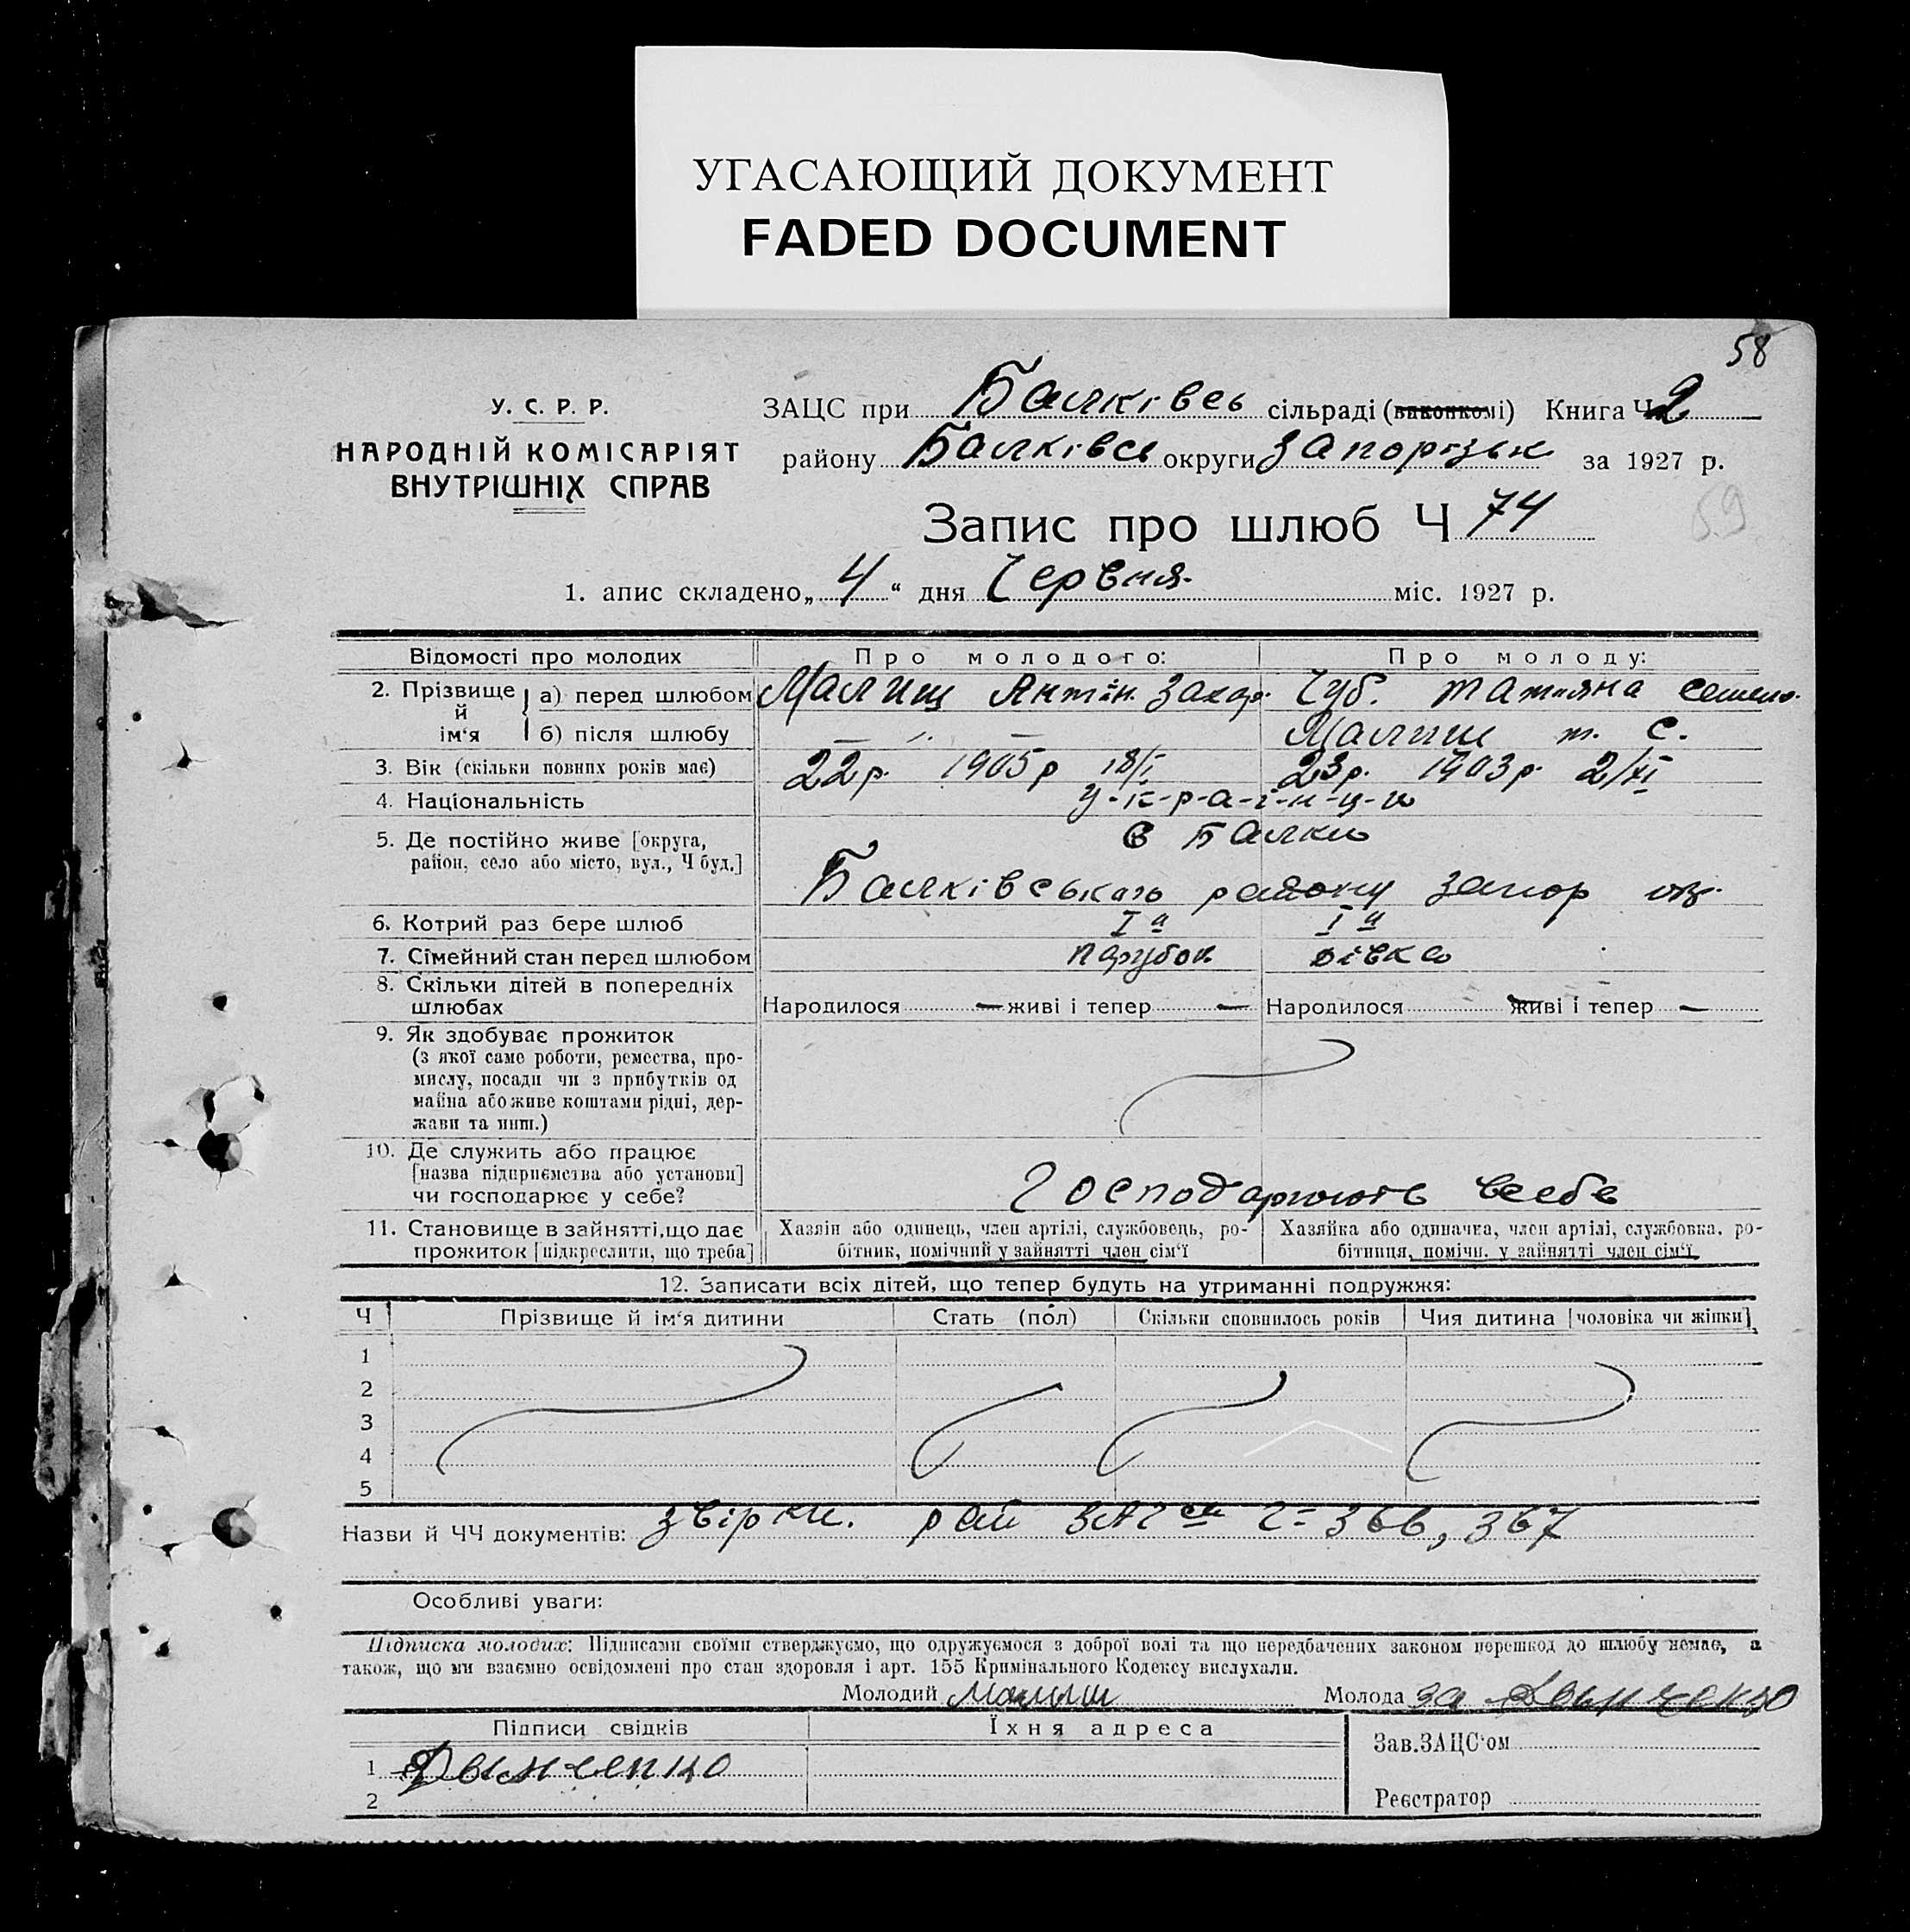 УГАСАЮЩИЙ ДОКУМЕНТ
FADED DOCUMENT
58
У. С. Р. Р.
НАРОДНІЙ КОМІСАРІЯТ
ВНУТРІШНІХ СПРАВ
ЗАЦС при Балківсь сільраді (виконкомі) Книга Ч 2
району Балківсь округи Запорізьк за 1927 р.
59
Запис про шлюб Ч 74
1. апис складено „ 4 “ дня Червня. міс. 1927 р.
Відомості про молодих Про молодого: Про молоду:
2. Прізвище й ім‘я а) перед шлюбом Малиш Антін. Захар. Чуб. Татияна Семено.
б) після шлюбу — „ — Малиш т. С.
3. Вік (скільки повних років має) 22 р. 1905 р 18/I 23 р. 1903 р. 2/XI
4. Національність у-к-р-а-ї-н-ц-и
5. Де постійно живе [округа, район, село або місто, вул., Ч буд.] с Балки
Балківського району запор
6. Котрий раз бере шлюб I й I й
7. Сімейний стан перед шлюбом парубок дівка
8. Скільки дітей в попередніх шлюбах Народилося — живі і тепер — Народилося — живі і тепер —
9. Як здобуває прожиток
(з якої саме роботи, ремества, про-
мислу, посади чи з прибутків од
майна або живе коштами рідні, дер-
жави та инш.)
10. Де служить або працює
[назва підприємства або установи]
чи господарює у себе? Господарюють всебе
11. Становище в зайнятті, що дає прожиток [підкреслити, що треба]
Хазяін або одинець, член артілі, службовець, ро-
бітник, помічний у зайнятті член сім‘ї
Хазяйка або одиначка, член артілі, службовка. ро-
бітниця, помічн. у зайнятті член сім‘ї
12. Записати всіх дітей, що тепер будуть на утриманні подружжя:
Ч Прізвище й ім‘я дитини Стать (пол) Скільки сповнилось років Чия дитина [чоловіка чи жінки]
1
2
3
4
5
Назви й ЧЧ документів: звірки. рай ЗАГСи 366, 367
Особливі уваги:
Підписка молодих: Підписами своїми стверджуємо, що одружуємося з доброї волі та що передбачених законом перешкод до шлюбу немає, а
також, що ми взаємно освідомлені про стан здоровля і арт. 155 Кримінального Кодексу вислухали.
Молодий Малыш Молода за
Підписи свідків Їхня адреса
Зав.ЗАЦС‘ом
1
2
Реєстратор